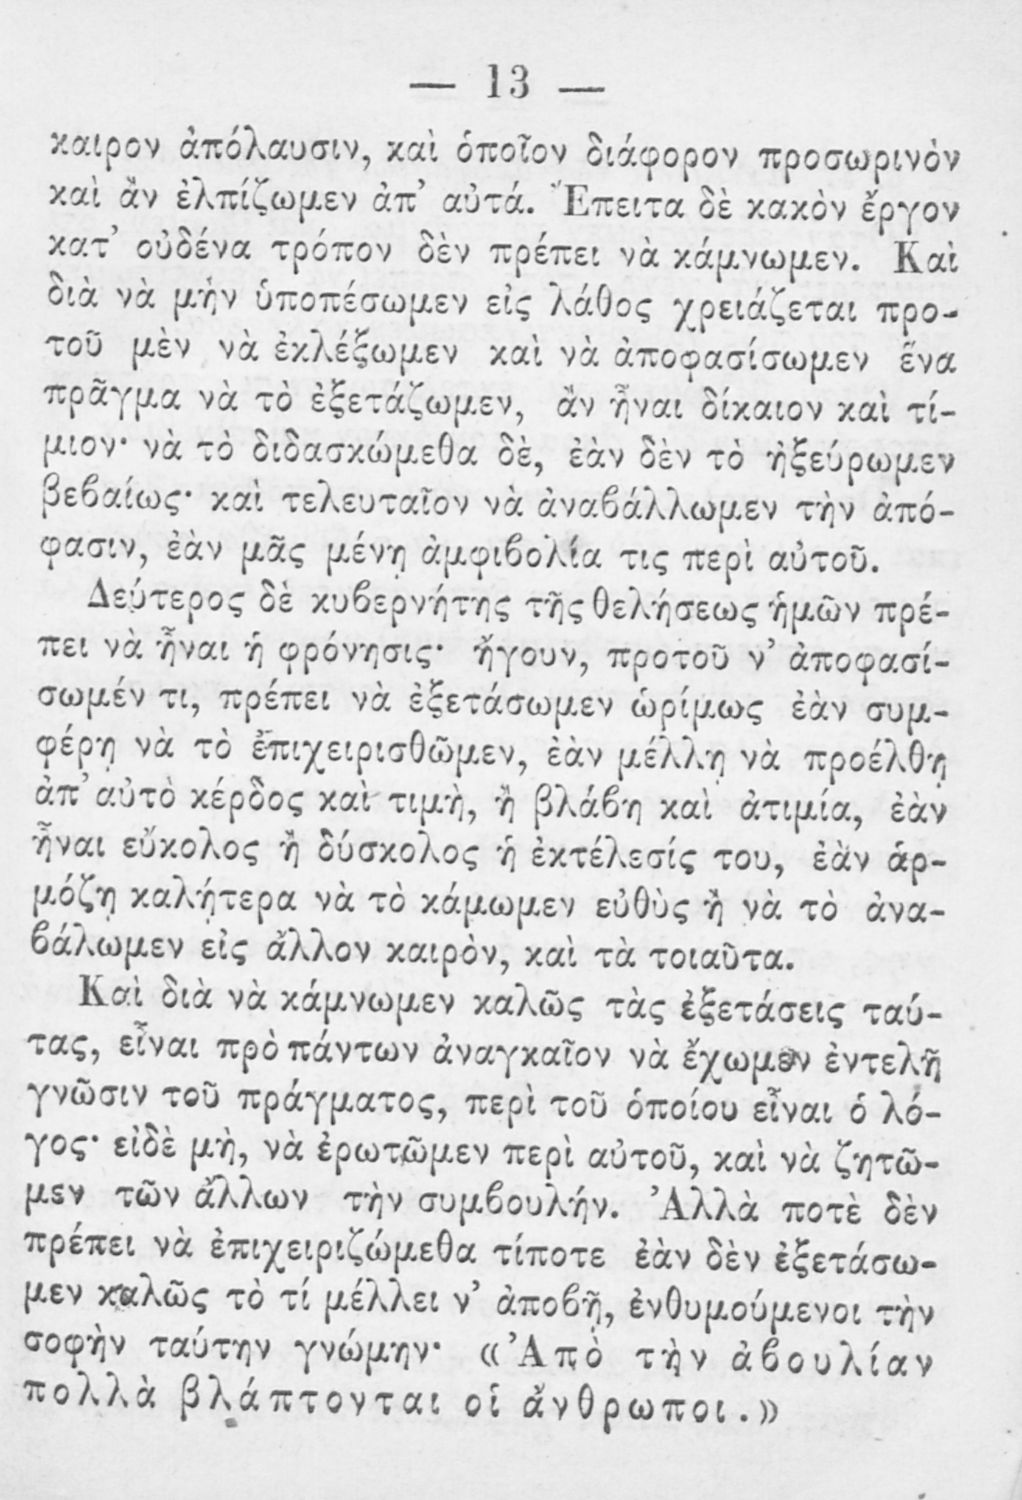 — 13 —
καιρον ἀπόλαυσιν, καὶ ὁποῖον διάφορον προσωρινὸν
καὶ ἂν ἐλπίζωμεν ἀπ’ αὐτά. Ἔπειτα δὲ κακὸν ἔργον
κατ’ οὐδένα τρόπον δὲν πρέπει νὰ κάμνωμεν. Καὶ
διὰ νὰ μὴν ὑποπέσωμεν εἰς λάθος χρειάζεται προ-
τοῦ μὲν νὰ ἐκλέξωμεν καὶ νὰ ἀποφασίσωμεν ἕνα
πρᾶγμα νὰ τὸ ἐξετάζωμεν, ἂν ἦναι δίκαιον καὶ τί-
μιον· νὰ τὸ διδασκώμεθα δὲ, ἐὰν δὲν τὸ ἠξεύρωμεν
βεβαίως· καὶ τελευταῖον νὰ ἀναβάλλωμεν τὴν ἀπό-
φασιν, ἐὰν μᾶς μένῃ ἀμφιβολία τις περὶ αὐτοῦ.
Δεύτερος δὲ κυβερνήτης τῆς θελήσεως ἡμῶν πρέ-
πει νὰ ἦναι ἡ φρόνησις· ἤγουν, προτοῦ ν’ ἀποφασί-
σωμέν τι, πρέπει νὰ ἐξετάσωμεν ὡρίμως ἐὰν συμ-
φέρῃ νὰ τὸ ἐπιχειρισθῶμεν, ἐὰν μέλλῃ νὰ προέλθῃ
ἀπ’ αὐτὸ κέρδος καὶ τιμὴ, ἢ βλάβη καὶ ἀτιμία, ἐὰν
ἦναι εὔκολος ἢ δύσκολος ἡ ἐκτέλεσίς του, ἐὰν ἁρ-
μόζῃ καλήτερα νὰ τὸ κάμωμεν εὐθὺς ἢ νὰ τὸ ἀνα-
βάλωμεν εἰς ἄλλον καιρὸν, καὶ τὰ τοιαῦτα.
Καὶ διὰ νὰ κάμνωμεν καλῶς τὰς ἐξετάσεις ταύ-
τας, εἶναι πρὸ πάντων ἀναγκαῖον νὰ ἔχωμεν ἐντελῆ
γνῶσιν τοῦ πράγματος, περὶ τοῦ ὁποίου εἶναι ὁ λό-
γος· εἰδὲ μὴ, νὰ ἐρωτῶμεν περὶ αὐτοῦ, καὶ νὰ ζητῶ-
μεν τῶν ἄλλων τὴν συμβουλήν. Ἀλλὰ ποτὲ δὲν
πρέπει νὰ ἐπιχειριζώμεθα τίποτε ἐὰν δὲν ἐξετάσω-
μεν καλῶς τὸ τί μέλλει ν’ ἀποβῇ, ἐνθυμούμενοι τὴν
σοφὴν ταύτην γνώμην· «Ἀπὸ τὴν ἀβουλίαν
πολλὰ βλάπτονται οἱ ἄνθρωποι.»